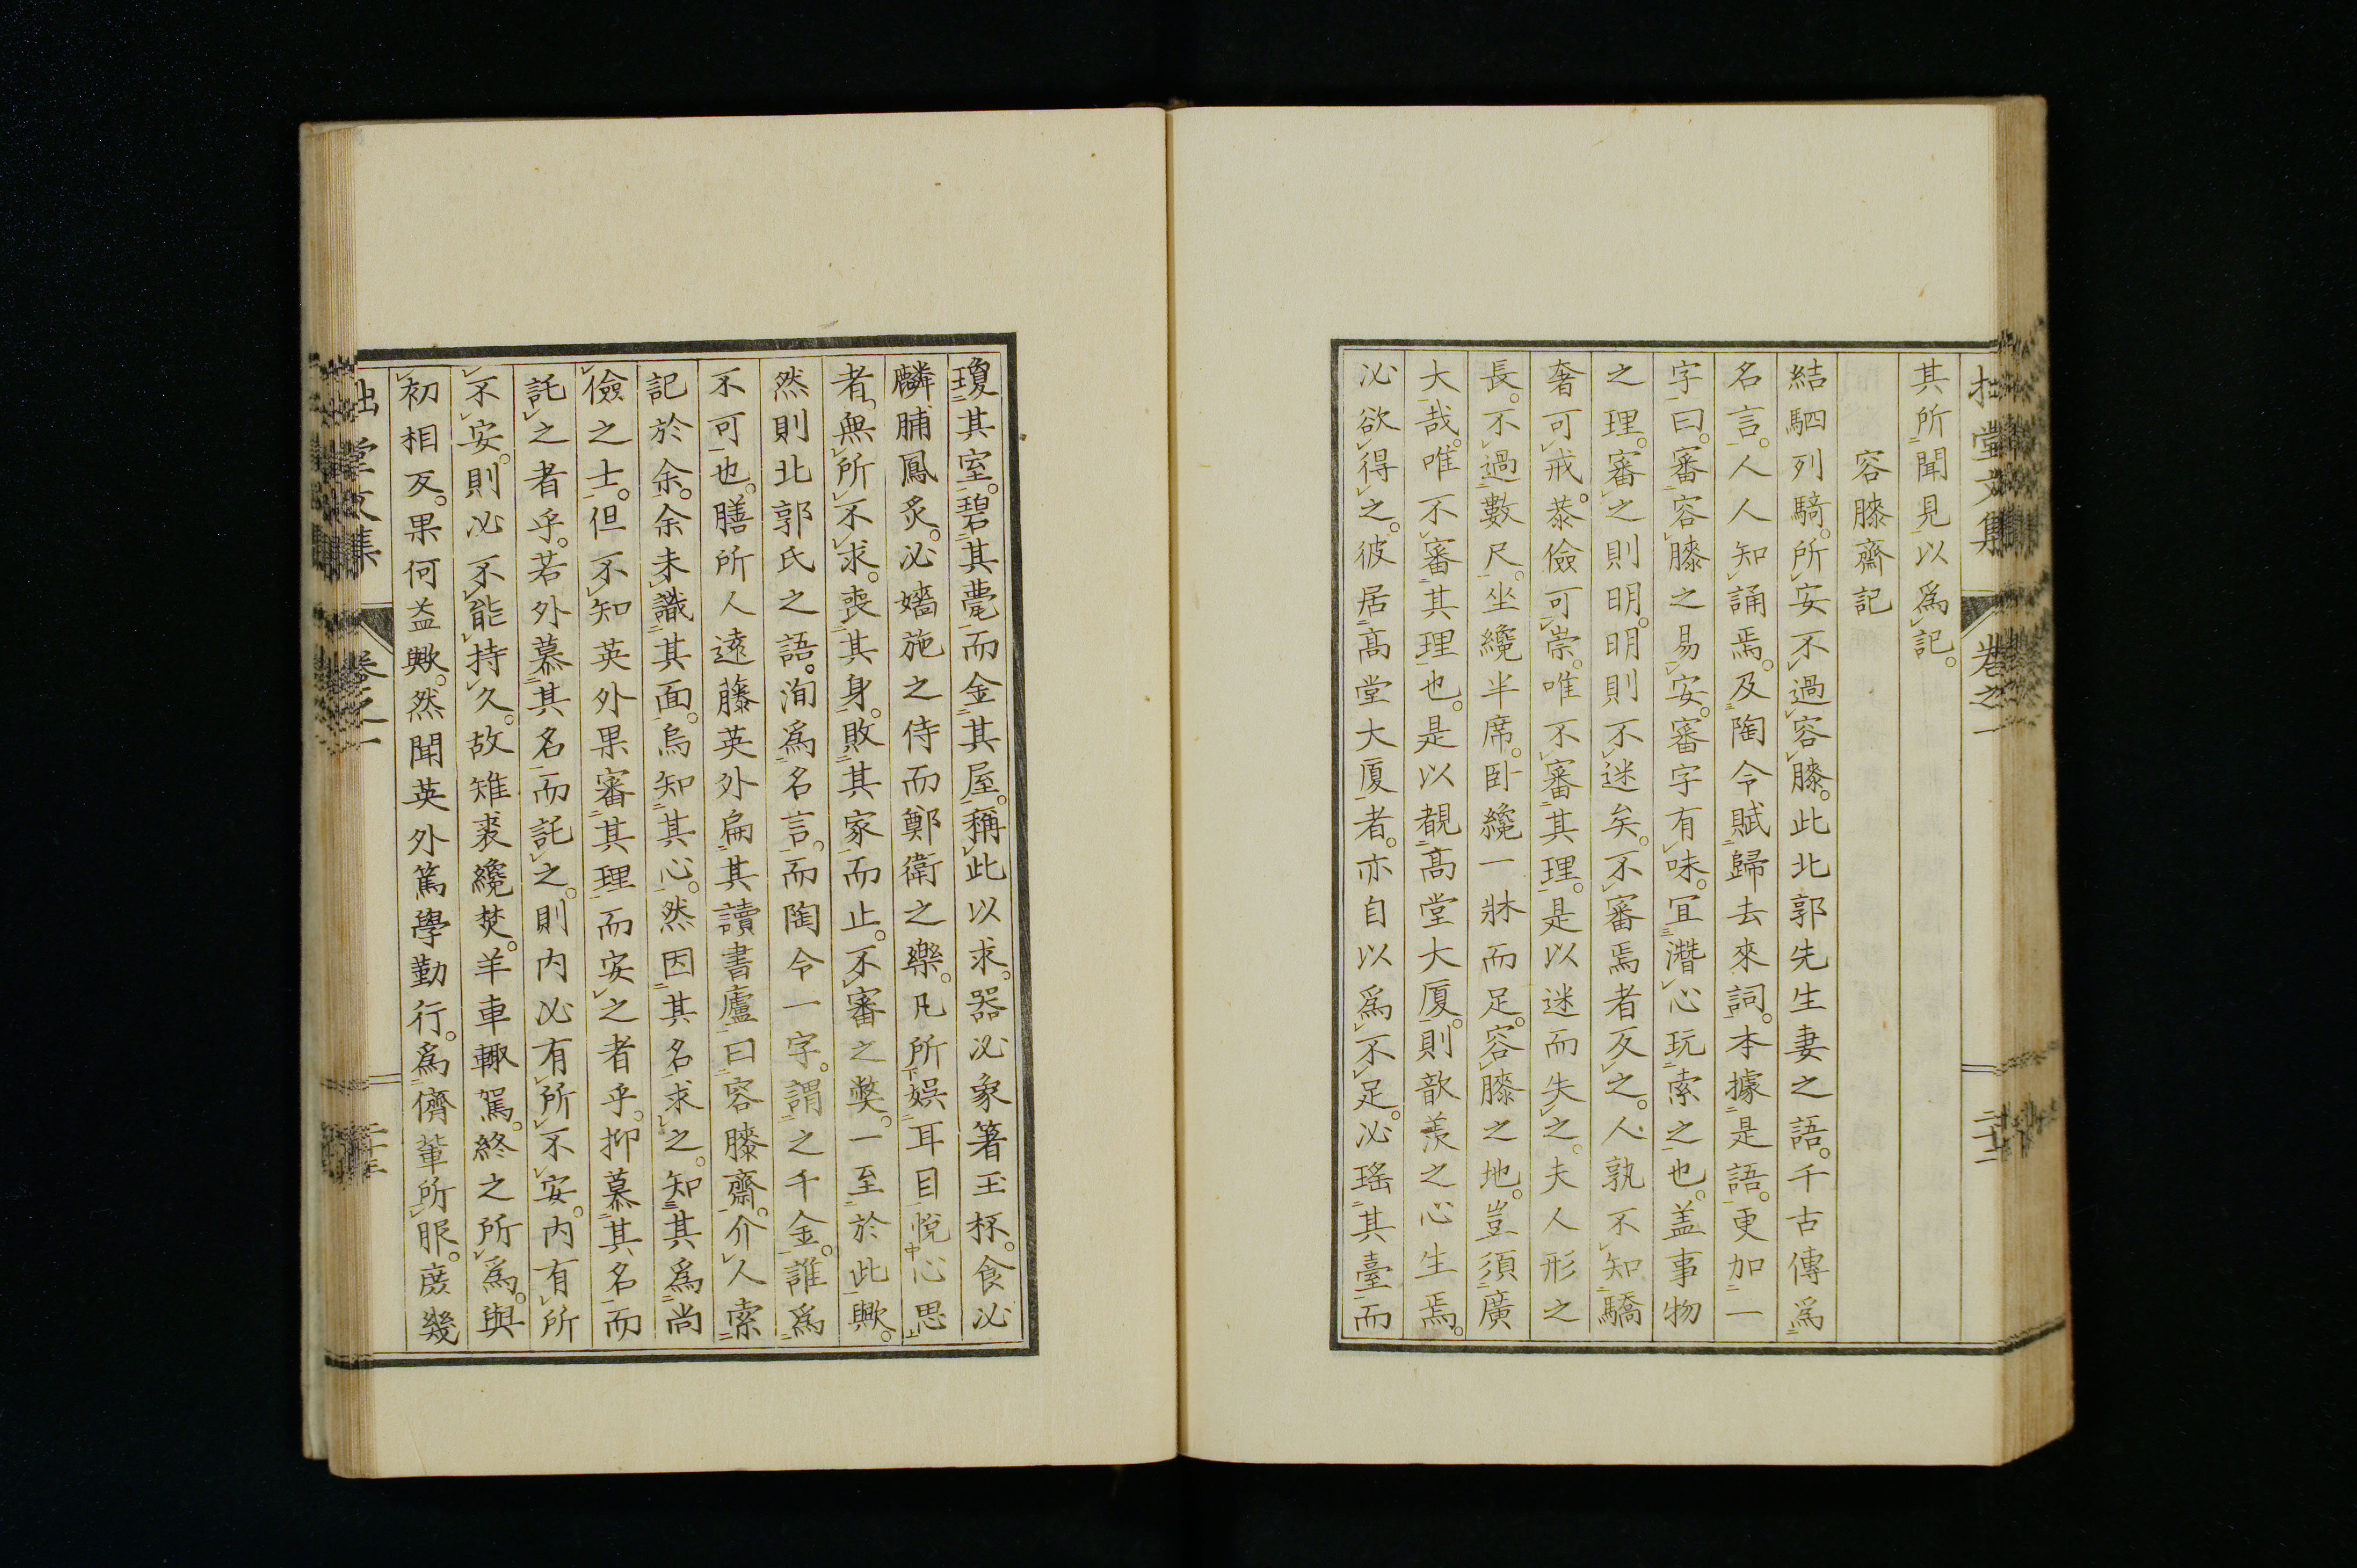 拙堂文集 卷之一 二十二
其所聞見以爲記。
容膝齋記
結駟列騎。所安不過容膝。此北郭先生妻之語。千古傳爲
名言。人人知誦焉。及陶令賦歸去來詞。本據是語。更加一
字曰。審容膝之易安。審字有味。宜潛心玩索之也。盖事物
之理。審之則明。明則不迷矣。不審焉者反之。人孰不知驕
奢可戒。恭儉可崇。唯不審其理。是以迷而失之。夫人形之
長。不過數尺。坐纔半席。臥纔一牀而足。容膝之地。豈須廣
大哉。唯不審其理也。是以覩髙堂大厦。則歆羨之心生焉。
必欲得之。彼居髙堂大厦者。亦自以爲不足。必瑤其臺而
瓊其室。碧其甍而金其屋。稱此以求。器必象箸玉杯。食必
麟脯鳳炙。必嬙施之侍而鄭衛之樂。凡所娯耳目悅心思
者。無所不求。喪其身。敗其家而止。不審之弊。一至於此歟。
然則北郭氏之語。洵爲名言。而陶令一字。謂之千金。誰爲
不可也。膳所人遠藤英外扁其讀書廬曰容膝齋。介人索
記於余。余未識其面。烏知其心。然因其名求之。知其爲尚
儉之士。但不知英外果審其理而安之者乎。抑慕其名而
託之者乎。若外慕其名而託之。則内必有所不安。内有所
不安。則必不能持久。故雉裘纔焚。羊車輙駕。終之所爲。與
初相反。果何益歟。然聞英外篤學勤行。爲儕輩所服。庻幾
拙堂文集 卷之一 二十三